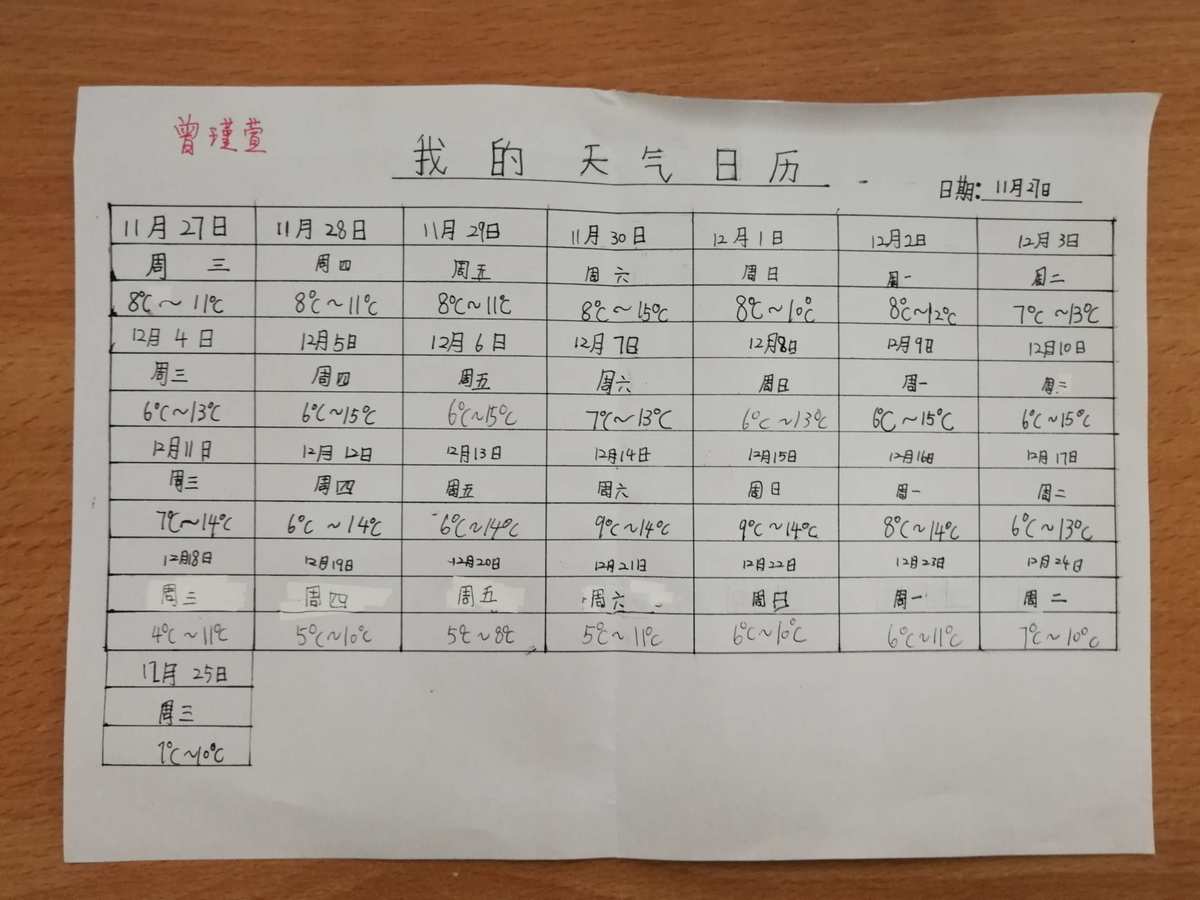 曾瑾萱
我的天气日历
日期:11月27日
11月27日 11月28日 11月29日 11月30日 12月1日 12月2日 12月3日
周三 周四 周五 周六 周日 周一 周二
8℃~11℃ 8℃~11℃ 8℃~11℃ 8℃~15℃ 8℃~10℃ 8℃~12℃ 7℃~13℃
12月4日 12月5日 12月6日 12月7日 12月8日 12月9日 12月10日
周三 周四 周五 周六 周日 周一 周二
6℃~13℃ 6℃~15℃ 6℃~15℃ 7℃~13℃ 6℃~13℃ 6℃~15℃ 6℃~15℃
12月11日 12月12日 12月13日 12月14日 12月15日 12月16日 12月17日
周三 周四 周五 周六 周日 周一 周二
7℃~14℃ 6℃~14℃ 6℃~14℃ 9℃~14℃ 9℃~14℃ 8℃~14℃ 6℃~13℃
12月18日 12月19日 12月20日 12月21日 12月22日 12月23日 12月24日
周三 周四 周五 周六 周日 周一 周二
4℃~11℃ 5℃~10℃ 5℃~8℃ 5℃~11℃ 6℃~10℃ 6℃~11℃ 7℃~10℃
12月25日
周三
7℃~10℃